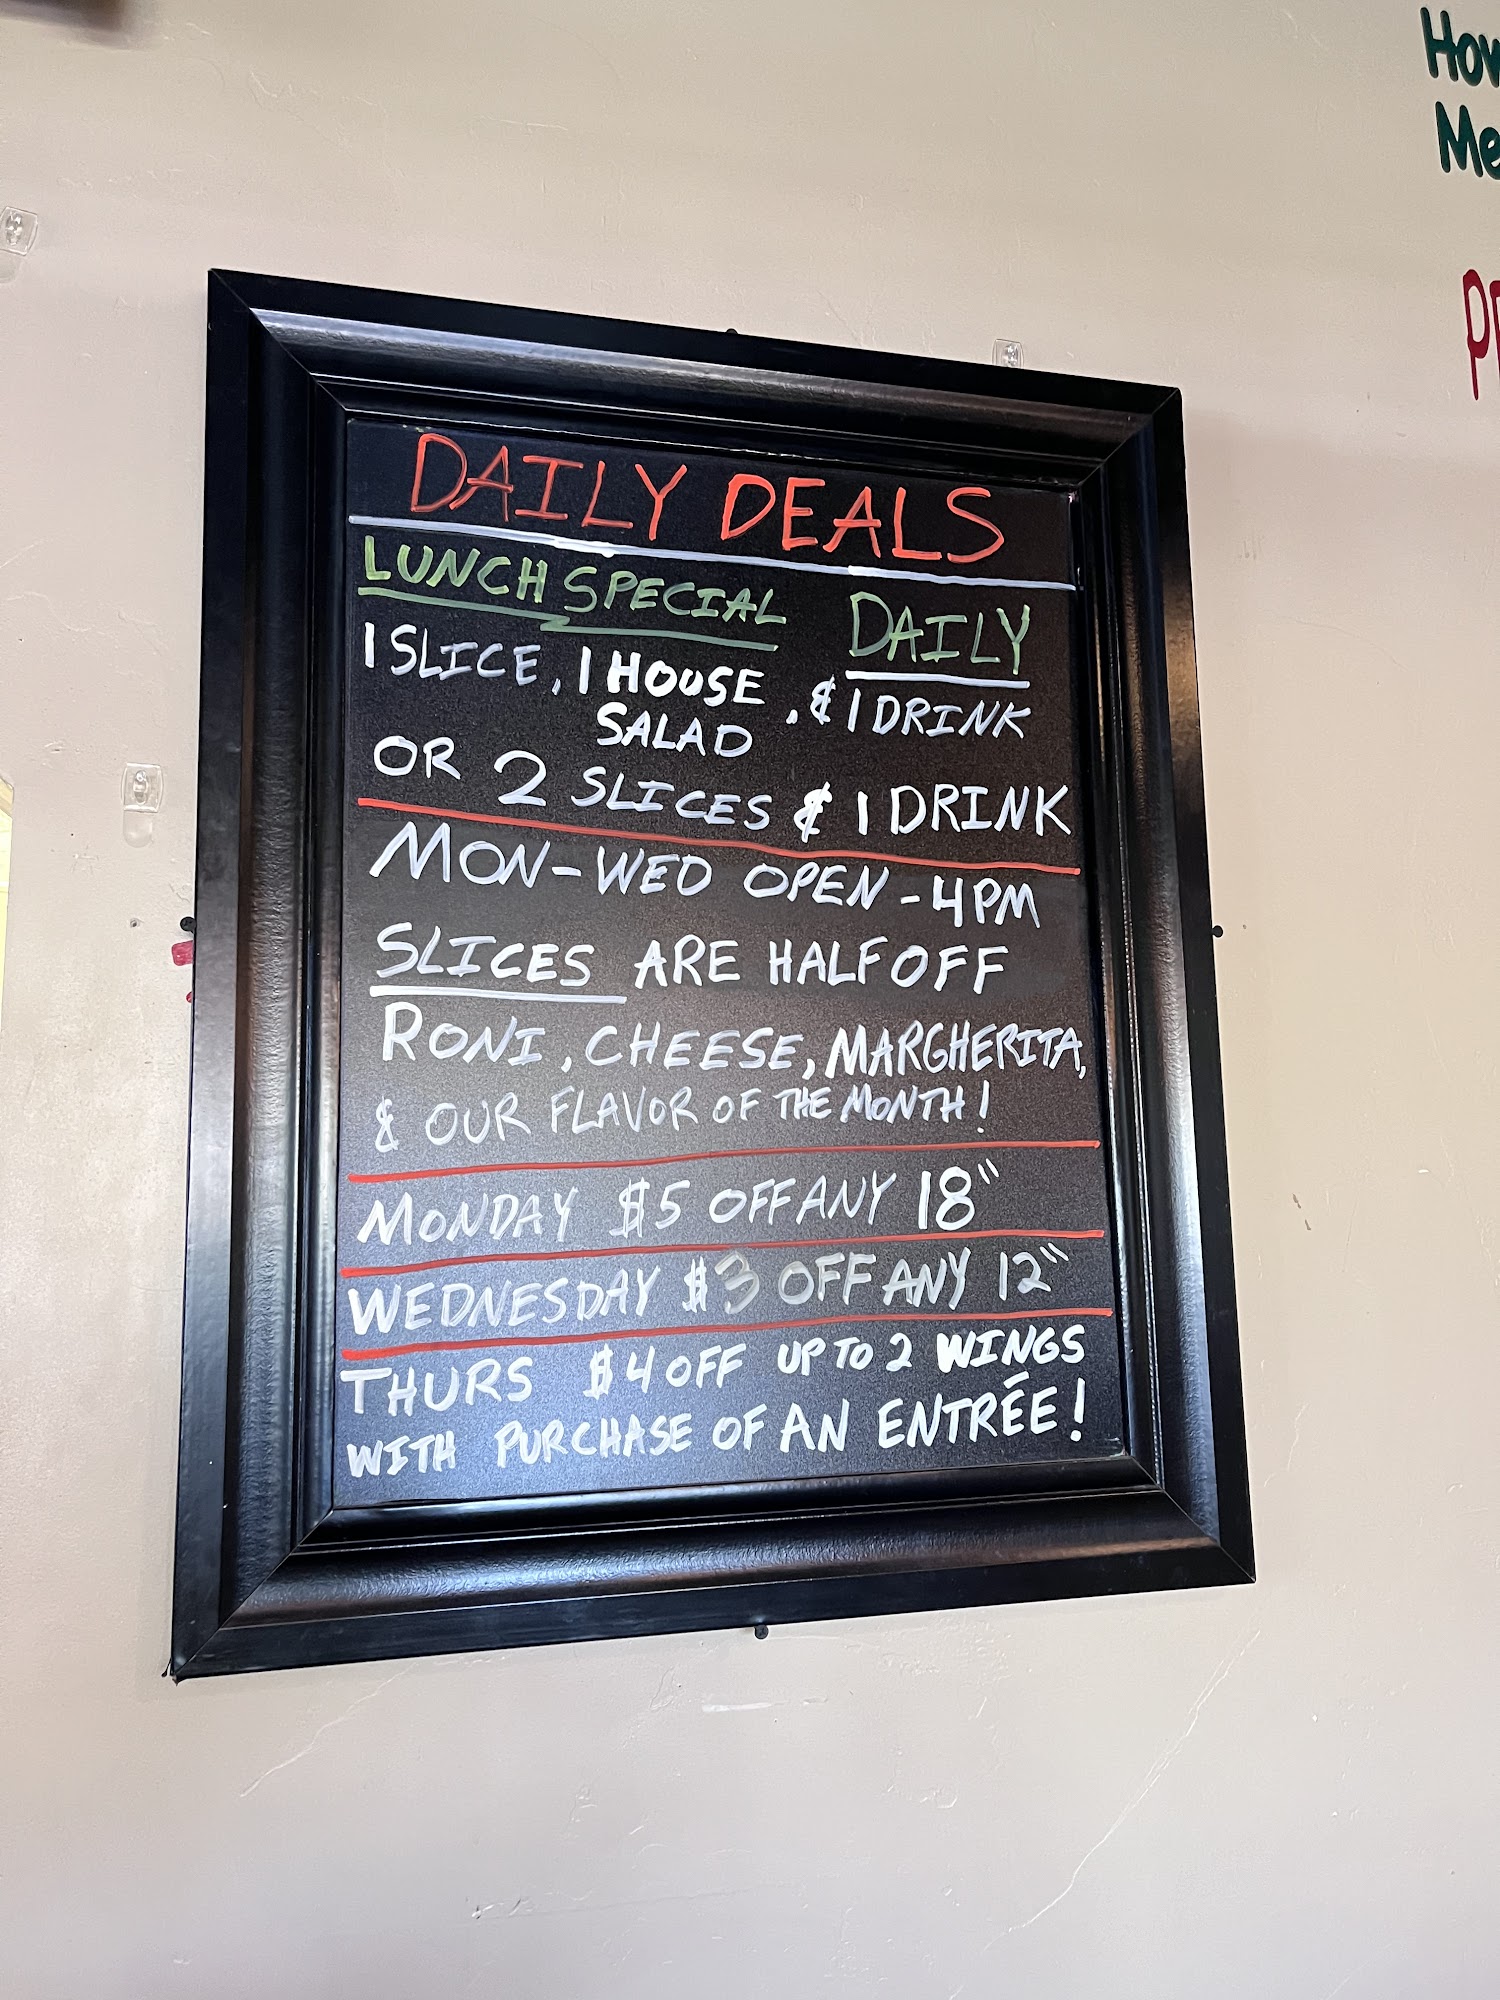 DAILY DEALS
LUNCH SPECIAL DAILY
1 SLICE, 1 HOUSE SALAD, & 1 DRINK
OR 2 SLICES & 1 DRINK
MON-WED OPEN-4PM
SLICES ARE HALF OFF
RONI, CHEESE, MARGHERITA,
& OUR FLAVOR OF THE MONTH!
MONDAY $5 OFF ANY 18"
WEDNESDAY $3 OFF ANY 12"
THURS $4 OFF UP TO 2 WINGS
WITH PURCHASE OF AN ENTRÉE!